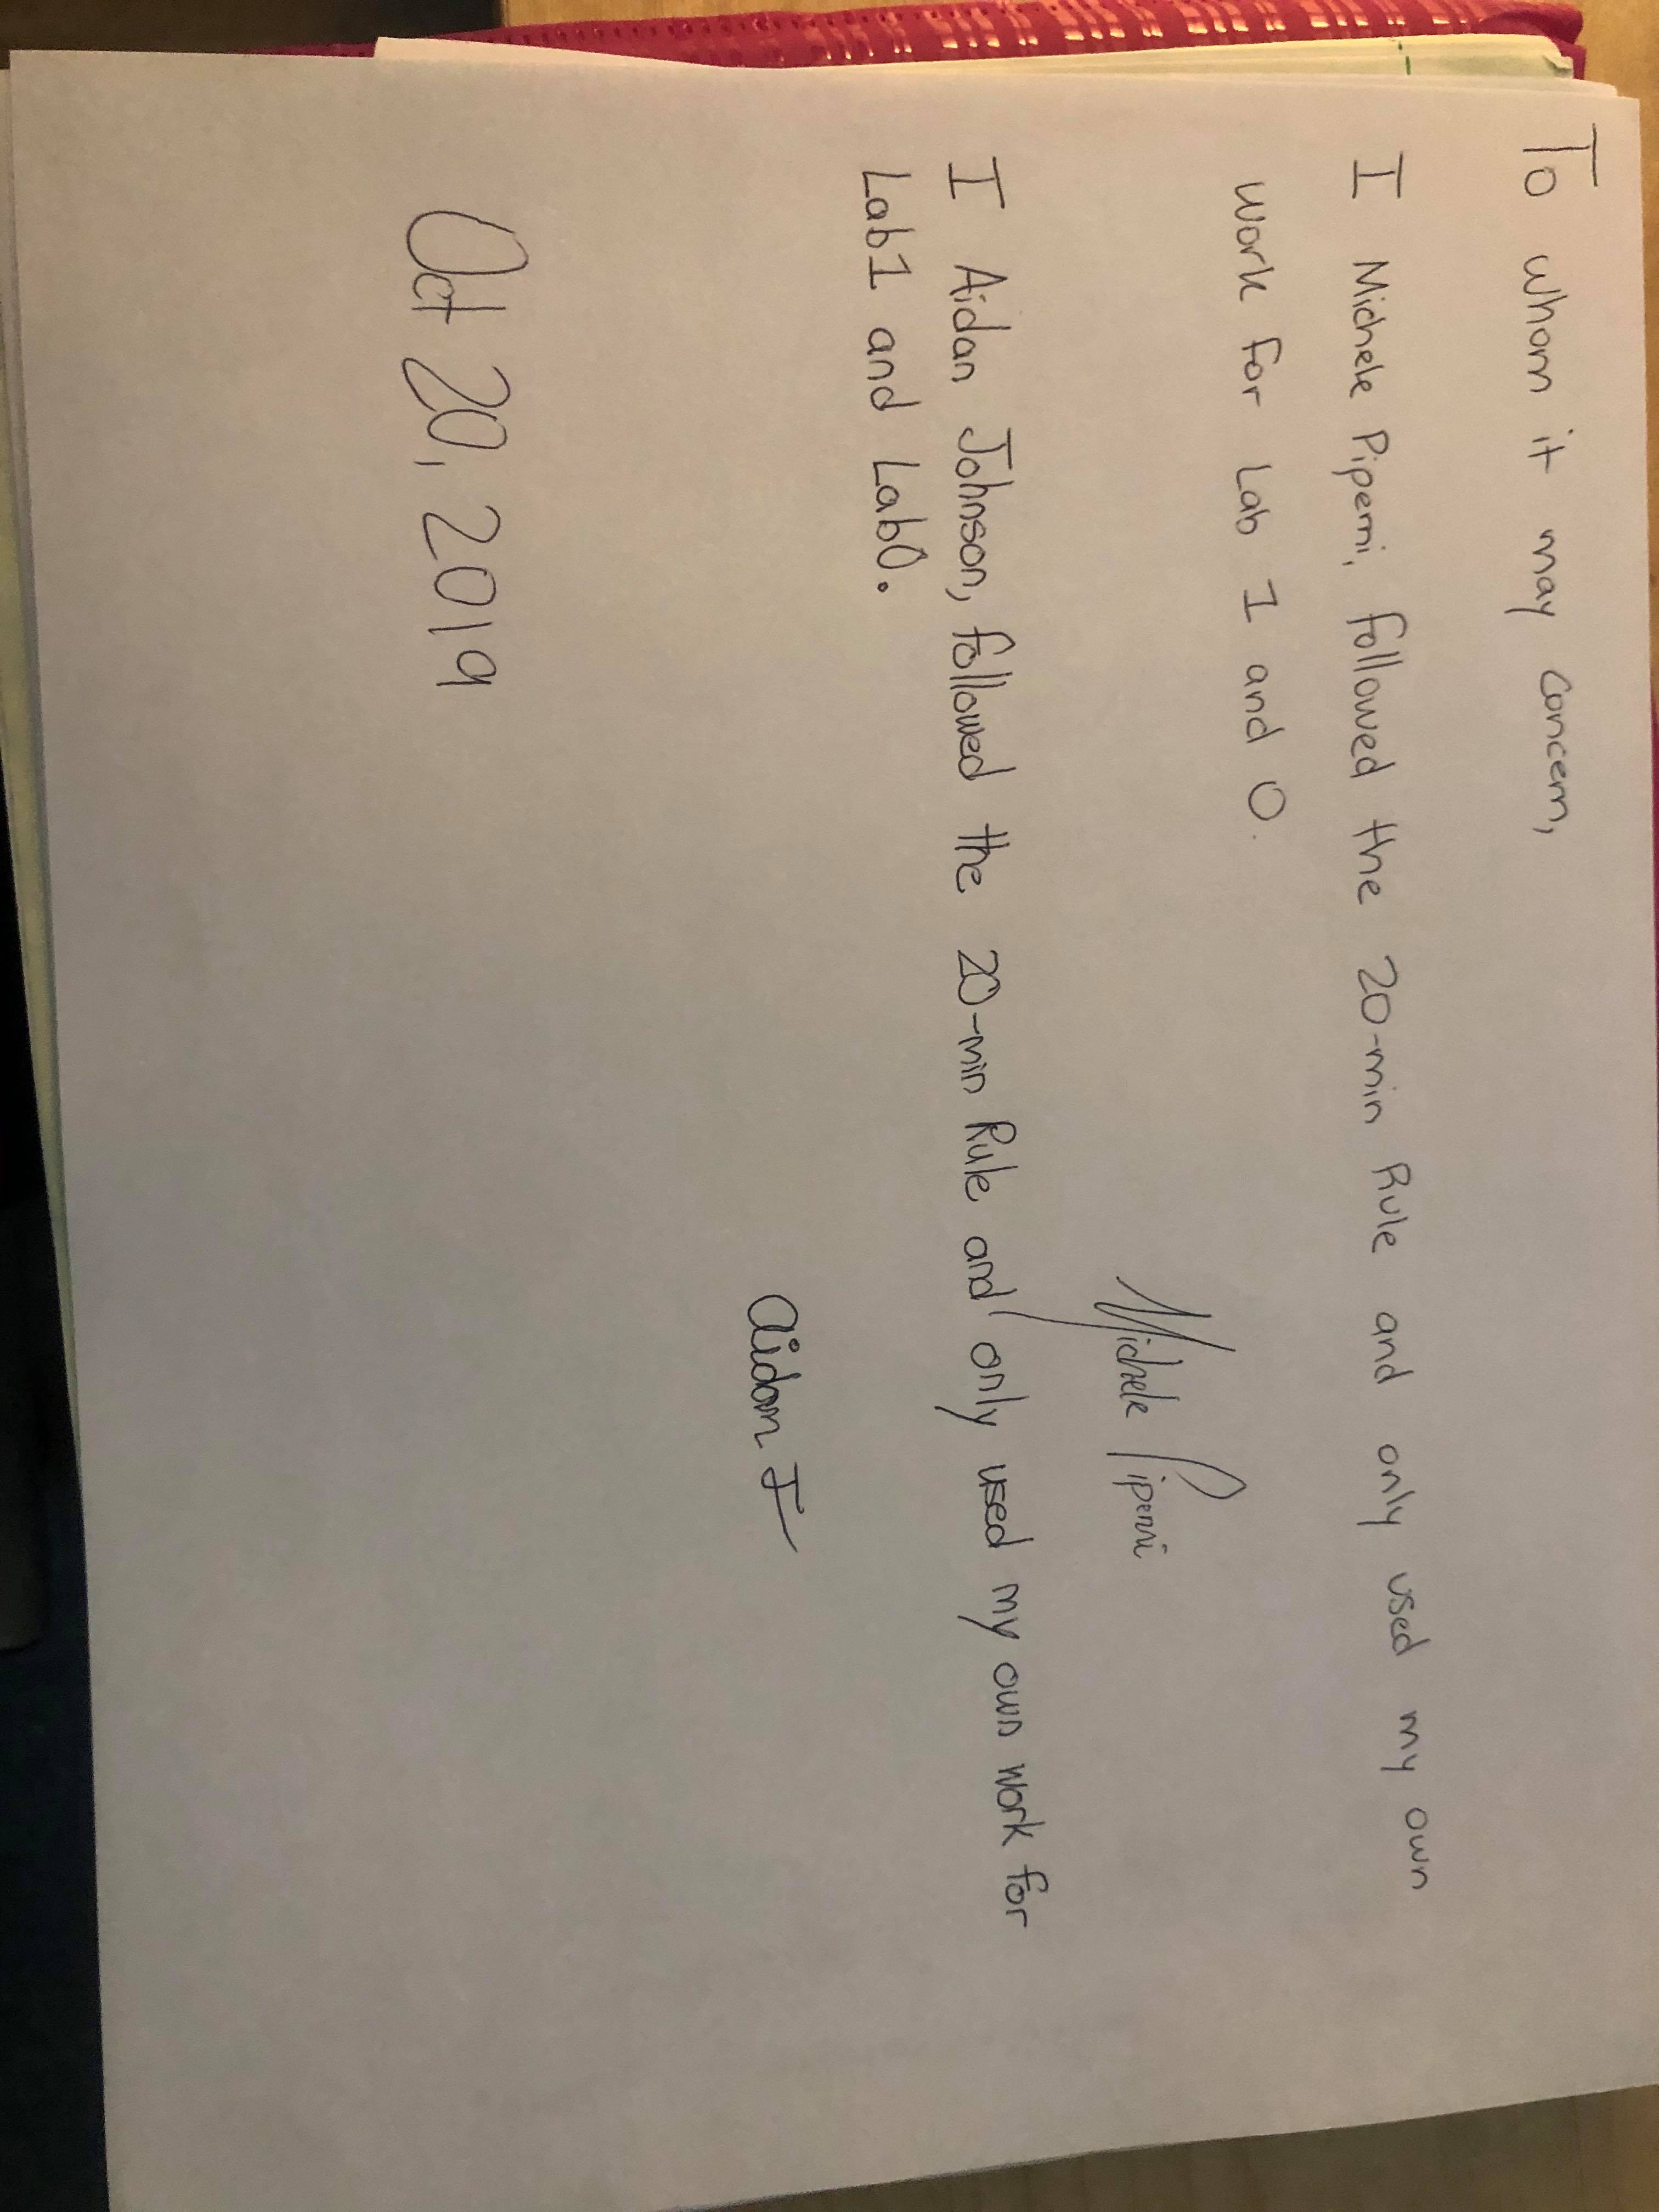 To whom it may concern,
I Michele Piperni, followed the 20-min Rule and only used my own
work for Lab 1 and 0.
Michele Piperni
I Aidan Johnson, followed the 20-min Rule and only used my own work for
Lab1 and Lab0.
Aidan J
Oct 20, 2019